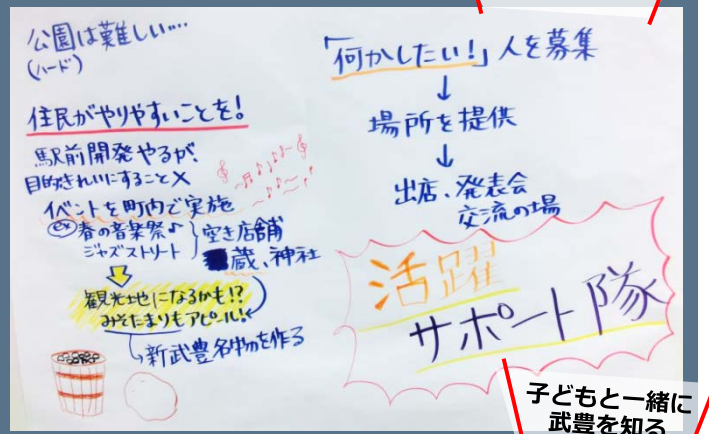 公園は難しい....
(ハード)
住民がやりやすいことを!
駅前開発やるが、
目的きれいにすること×
イベントを町内で実施
ex 春の音楽祭♪
ジャズストリート
空き店舗
蔵、神社
観光地になるかも!?
みそたまりもアピール!
新武豊名物を作る
「何かしたい!」人を募集
↓
場所を提供
↓
出店、発表会
交流の場
活躍
サポート隊
子どもと一緒に
武豊を知る